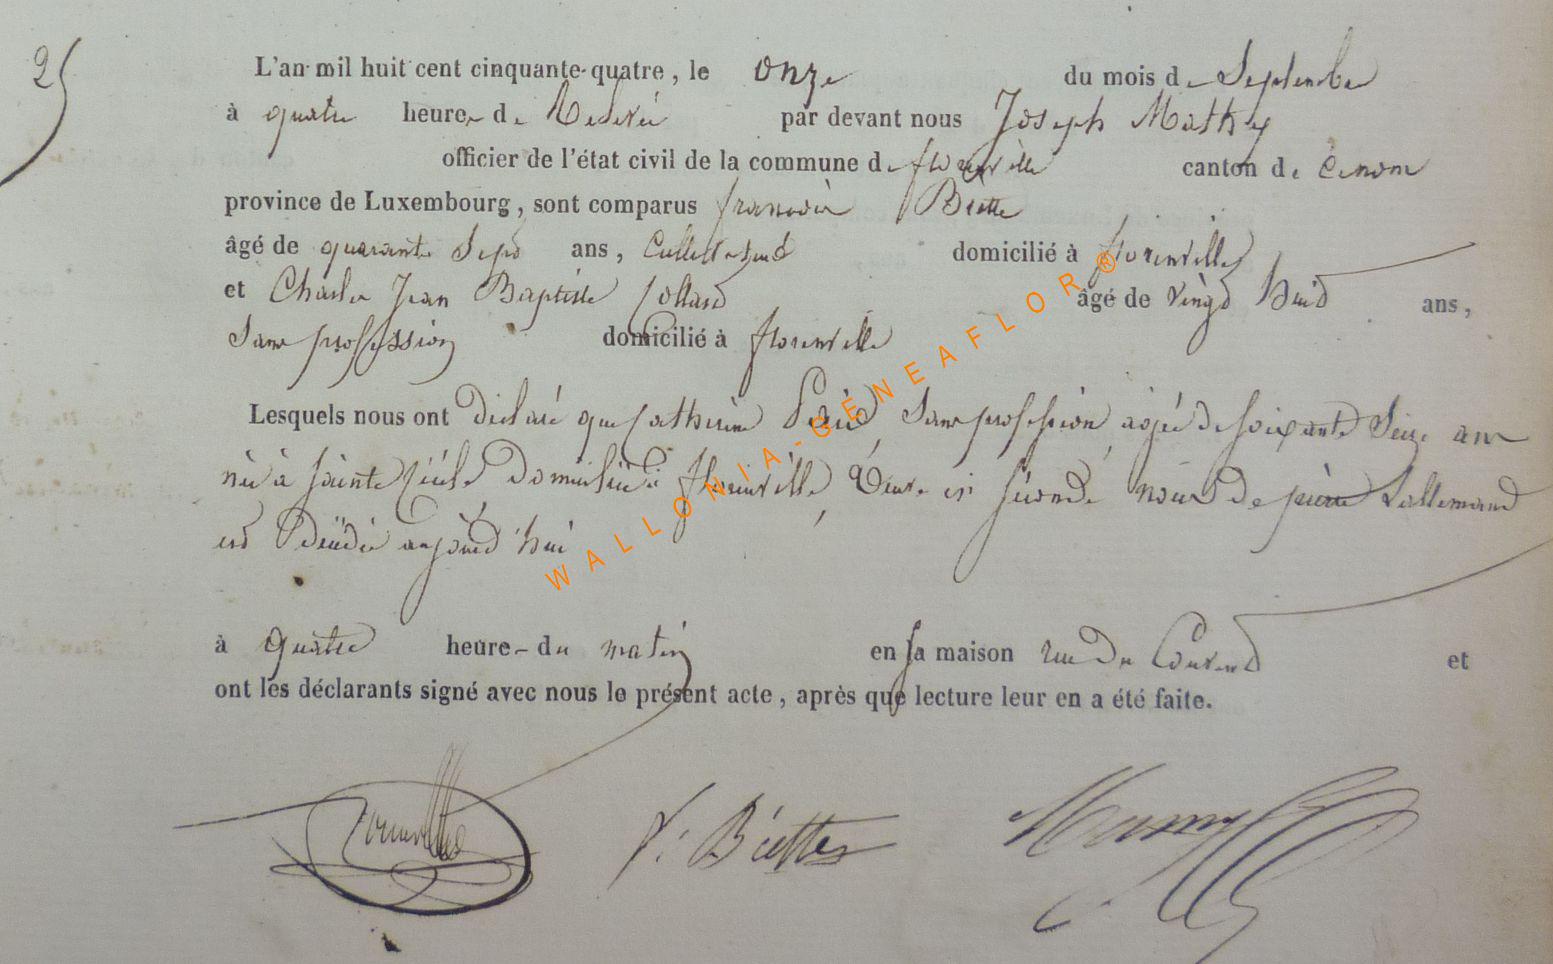 25
L'an mil huit cent cinquante-quatre, le onze du mois de Septembre
à quatre heures de relevée par devant nous Joseph Mathy
officier de l'état civil de la commune de florenville canton de
province de Luxembourg, sont comparus francois Biette
âgé de quarante Sept ans, Cultivateur domicilié à florenville
et Charles Jean Baptiste Collard âgé de vingt huit ans,
Sans profession domicilié à florenville
Lesquels nous ont déclaré que Catherine Sans profession agée de soixante Seize ans
née à Sainte Cécile domiciliée à florenville, Veuve en seconde noces de pierre Lallemand
est décédée aujourd'hui
à quatre heures du matin en sa maison rue du Couvent et
ont les déclarants signé avec nous le présent acte, après que lecture leur en a été faite.
f. Biette
WALLONIA-GÉNÉAFLOR®